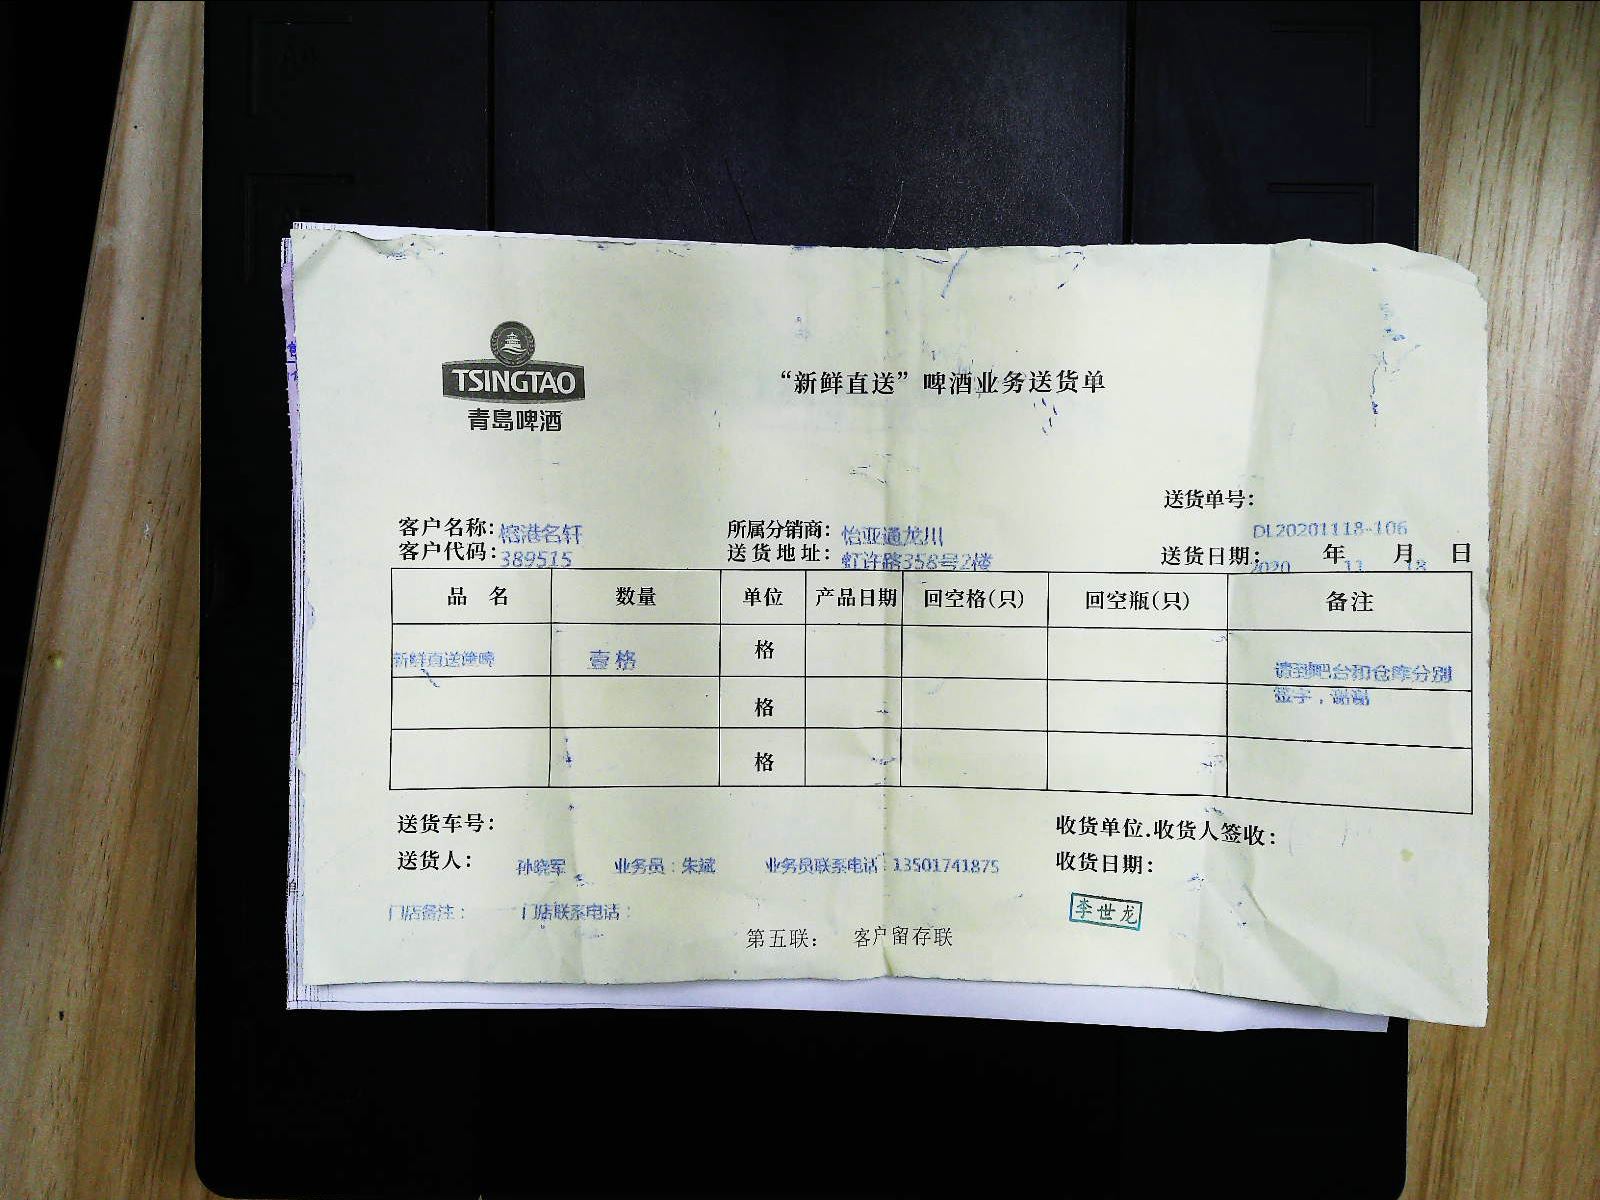 TSINGTAO
青島啤酒
“新鲜直送”啤酒业务送货单
送货单号：
DL20201118-106
客户名称：榕港名轩 所属分销商：怡亚通龙川
客户代码：389515 送货地址：虹许路358号2楼 送货日期：2020 年 11 月 18 日
品 名 数量 单位 产品日期 回空格(只) 回空瓶(只) 备注
新鲜直送 壹格 格 请到吧台和仓库分别
签字，谢谢
格
格
送货车号： 收货单位.收货人签收：
送货人： 孙晓军 业务员：朱斌 业务员联系电话：13501741875 收货日期：
门店备注： 门店联系电话： 李世龙
第五联： 客户留存联